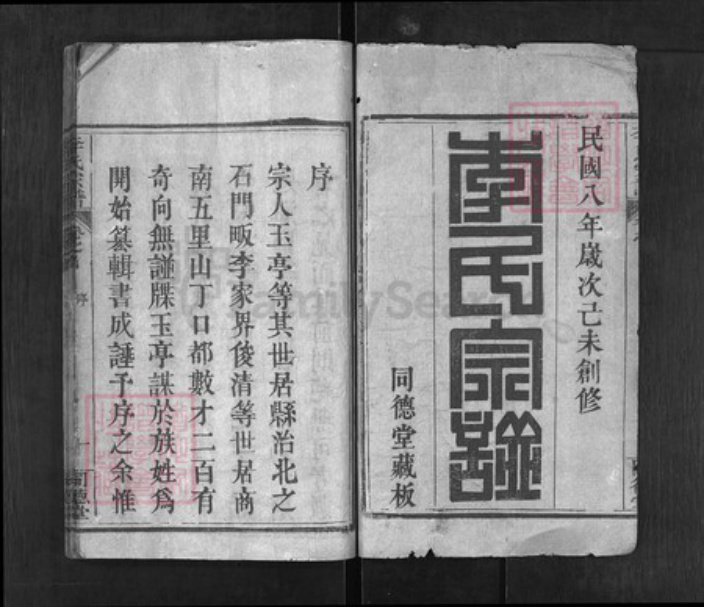 民國八年歲次己未創修
李氏宗譜
同德堂藏板
序
宗人玉亭等其世居縣治北之
石門畈李家界俊清等世居商
南五里山丁口都數才二百有
奇向無譜牒玉亭謀於族姓為
開始纂輯書成諈予序之余惟
李氏宗譜
序
FamilySearch